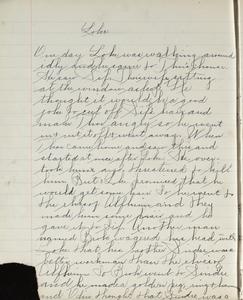 Loki
One day Loki was walking around
idly and he came to Thor's house
He saw Sif, Thor's wife, sitting
at the window asleep. He
thought it would be a good
joke to cut off Sif's hair and
make Thor angry so he went
in and cut it off & went away. When
Thor came home and saw this and
started at once after Loki. He over-
took him and threatened to kill
him But if he promised that he
would get some hair So he went to
the elves of Alfheim and they
made him some hair and he
gave it to Sif. Another man
named Brok wagered his head with
Loki that his brother Sindre was
better workman than the elves of
Alfheim So Brok went to Sindre
and he made a golden pig ring, hammer
and Thor thought that Sindre was a